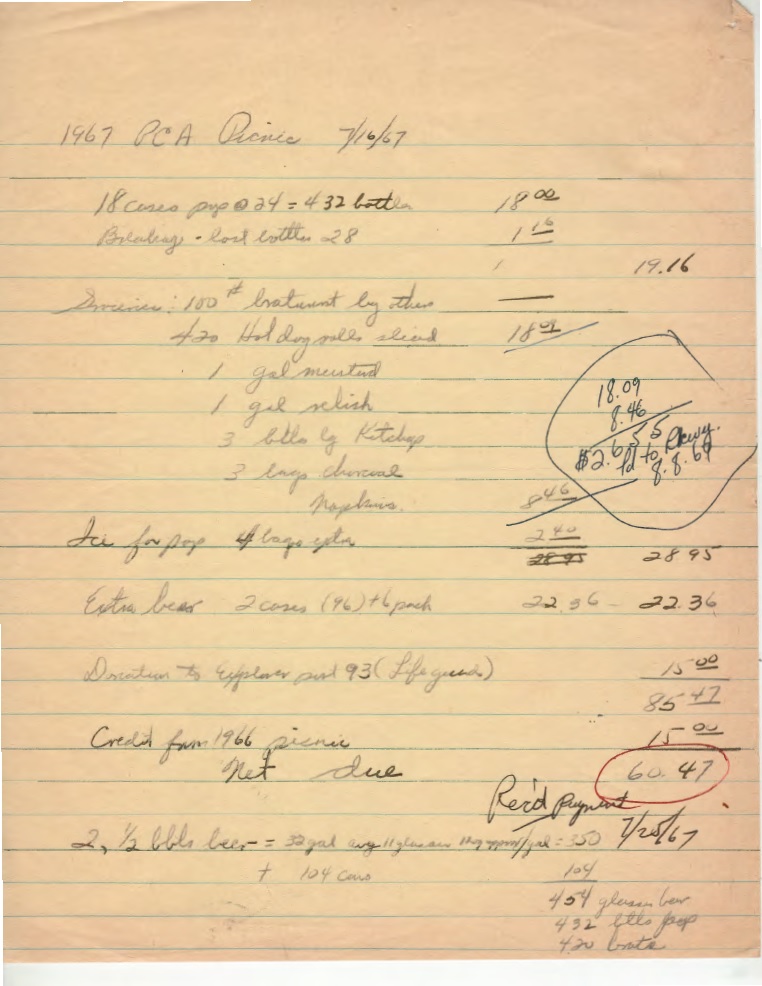 1967 PCA Picnic 7/16/67
18 cases pop @ 24 = 432 bottles 18 00
Breakage - lost bottles 28 1 16
19.16
Groceries: 100# bratwurst by others —
420 Hot dog rolls sliced 18 09
1 gal mustard
1 gal relish
3 btls lg Ketchup
3 bags charcoal
Napkins. 8 46
18.09
8.46
Pd to Pkwy.
Ice for pop 4 bags extra 2 40
28 95 28 95
Extra beer 2 cases (96) + 6 pack 22.36 - 22.36
Donation to Explorer post 93 (Life guards) 15 00
85 47
Credit from 1966 picnic 15 00
Net due 60.47
Rec'd Payment
7/25/67
2, 1/2 bbls beer = 32 gal avg 11 glasses /gal = 350
+ 104 cans 104
454 glasses beer
432 btls pop
420 brats